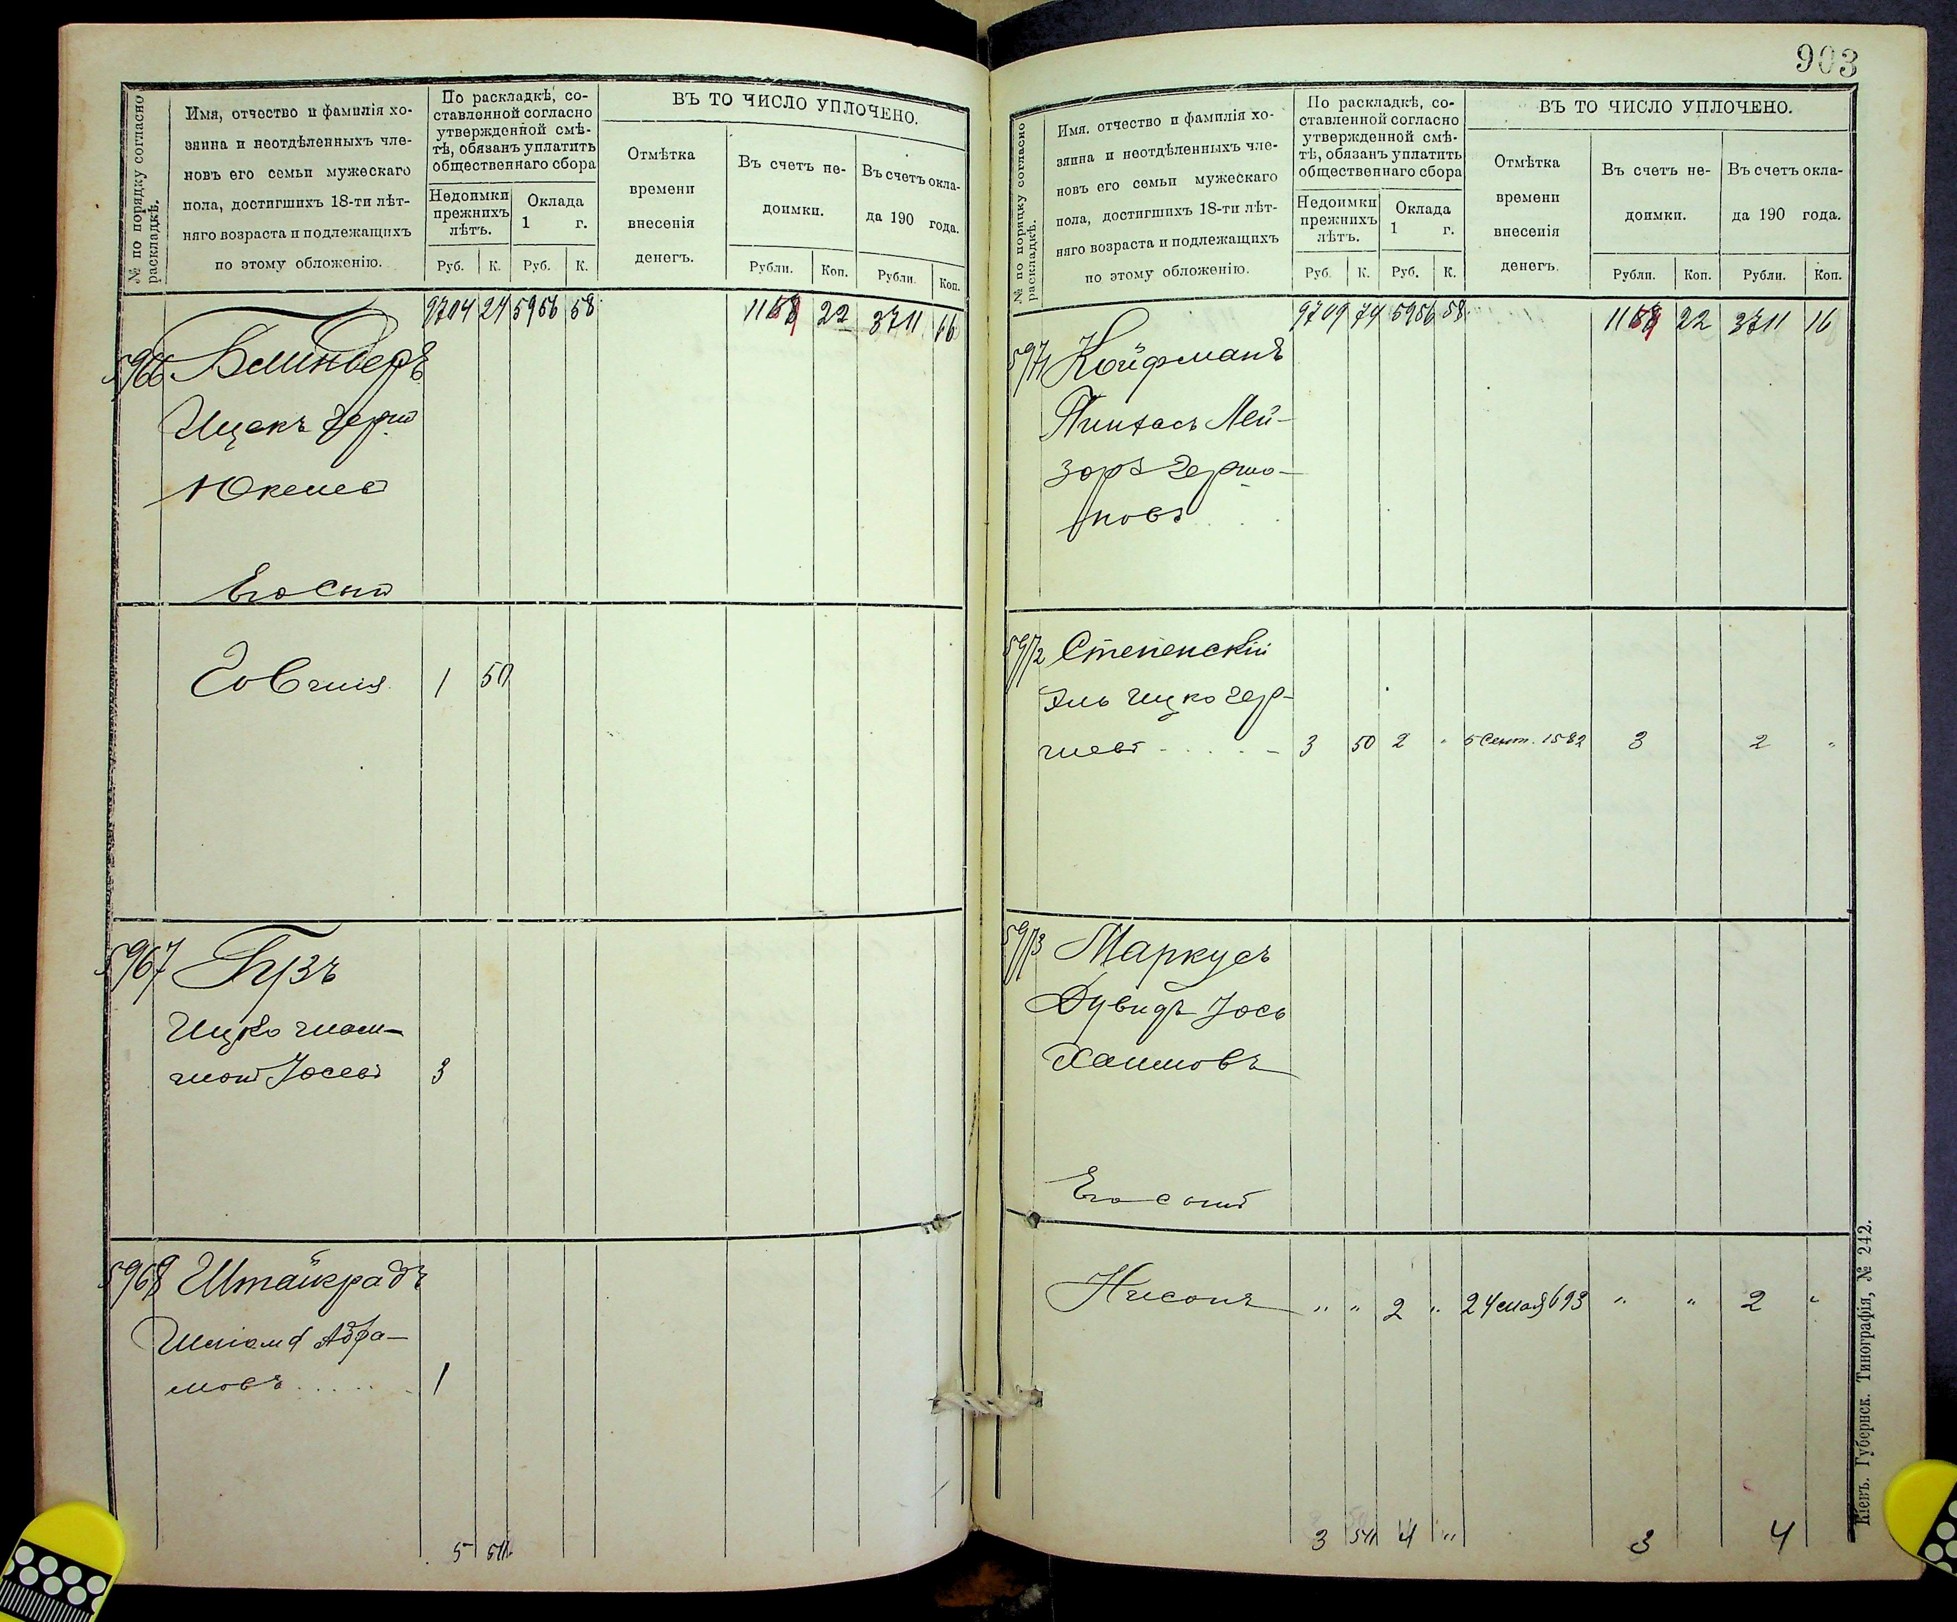 № по порядку согласно раскладкѣ.
Имя, отчество и фамилія хо-
зяина и неотдѣленныхъ чле-
новъ его семьи мужескаго
пола, достигшихъ 18-ти лѣт-
няго возраста и подлежащихъ
по этому обложенію.
По раскладкѣ, со-
ставленной согласно
утвержденной смѣ-
тѣ, обязанъ уплатить
общественнаго сбора
Недоимки
прежнихъ
лѣтъ.
Оклада
1 г.
Руб. К. Руб. К.
ВЪ ТО ЧИСЛО УПЛОЧЕНО.
Отмѣтка
времени
внесенія
денегъ.
Въ счетъ не-
доимки.
Въ счетъ окла-
да 190 года.
Рубли. Коп. Рубли. Коп.
9704 24 5956 58 22 3711 16
5966
Ицекъ Герш
Юкелев
Его сын
1 50
5967 Гузъ
Ицко
Іосев 3
5968 Штайградъ
Абра-
мовъ 1
5 50
903
№ по порядку согласно раскладкѣ.
Имя, отчество и фамилія хо-
зяина и неотдѣленныхъ чле-
новъ его семьи мужескаго
пола, достигшихъ 18-ти лѣт-
няго возраста и подлежащихъ
по этому обложенію.
По раскладкѣ, со-
ставленной согласно
утвержденной смѣ-
тѣ, обязанъ уплатить
общественнаго сбора
Недоимки
прежнихъ
лѣтъ.
Оклада
1 г.
Руб. К. Руб. К.
ВЪ ТО ЧИСЛО УПЛОЧЕНО.
Отмѣтка
времени
внесенія
денегъ.
Въ счетъ не-
доимки.
Въ счетъ окла-
да 190 года.
Рубли. Коп. Рубли. Коп.
9709 74 5956 58 22 3711 16
5971 Койфманъ
Пинхасъ Лей-
зоръ Гершо-
новъ
5972 Степенскій
Эль Ицко Гер-
шевъ 3 50 2 " 5 Сент. 1582 3 2 "
5973 Маркусъ
Дувидъ Іось
Хаимовъ
Его сынъ
Нисонъ " " 2 " 24 мая 693 " " 2 "
3 50 4 " 3 4
Кіевъ. Губернск. Типографія, № 242.